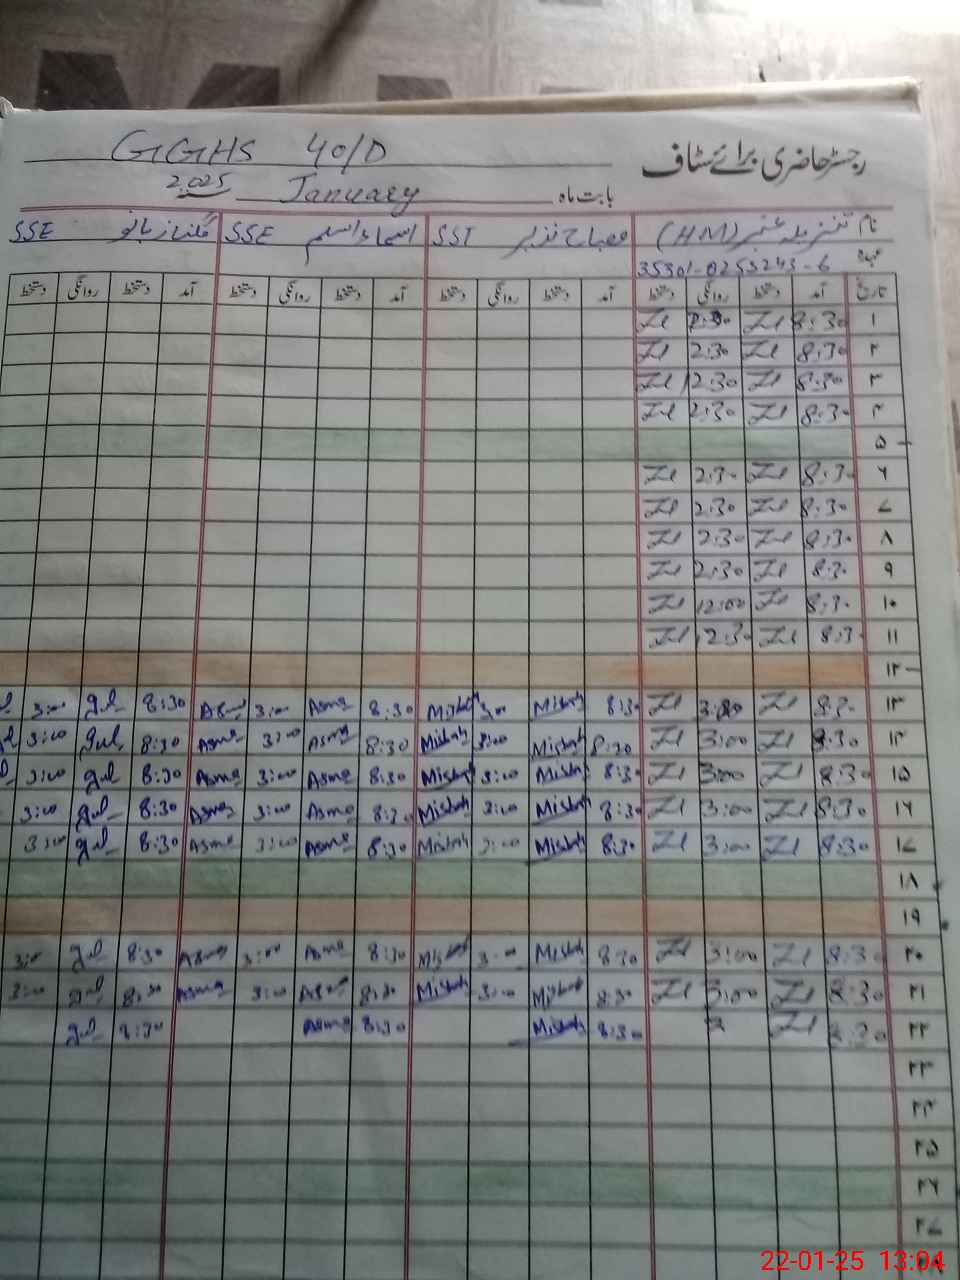 GGHS 40/D رجسٹر حاضری برائے سٹاف
2025 January بابت ماہ
نام تنزیلہ عنبر (HM) مصباح نذیر SST اسماء اسلم SSE گلناز بانو SSE
عہدہ 35301-0253243-6
تاریخ آمد دستخط روانگی دستخط آمد دستخط روانگی دستخط آمد دستخط روانگی دستخط آمد دستخط روانگی دستخط
۱ 8:30 2:30
۲ 8:30 2:30
۳ 8:30 12:30
۴ 8:30 2:30
۵
۶ 8:30 2:30
۷ 8:30 2:30
۸ 8:30 2:30
۹ 8:30 2:30
۱۰ 8:30 12:00
۱۱ 8:30 12:30
۱۲
۱۳ 8:30 3:00 8:30 Misbah 3:00 Misbah 8:30 Asma 3:00 Asma 8:30 gul 3:00
۱۴ 8:30 3:00 8:30 Misbah 3:00 Misbah 8:30 Asma 3:00 Asma 8:30 gul 3:00
۱۵ 8:30 3:00 8:30 Misbah 3:00 Misbah 8:30 Asma 3:00 Asma 8:30 gul 3:00
۱۶ 8:30 3:00 8:30 Misbah 3:00 Misbah 8:30 Asma 3:00 Asma 8:30 gul 3:00
۱۷ 8:30 3:00 8:30 Misbah 3:00 Misbah 8:30 Asma 3:00 Asma 8:30 gul 3:00
۱۸
۱۹
۲۰ 8:30 3:00 8:30 Misbah 3:00 Misbah 8:30 Asma 3:00 Asma 8:30 gul 3:00
۲۱ 8:30 3:00 8:30 Misbah 3:00 Misbah 8:30 Asma 3:00 Asma 8:30 gul 3:00
۲۲ 8:30 8:30 Misbah 8:30 Asma 8:30 gul
۲۳
۲۴
۲۵
۲۶
۲۷
22-01-25 13:04